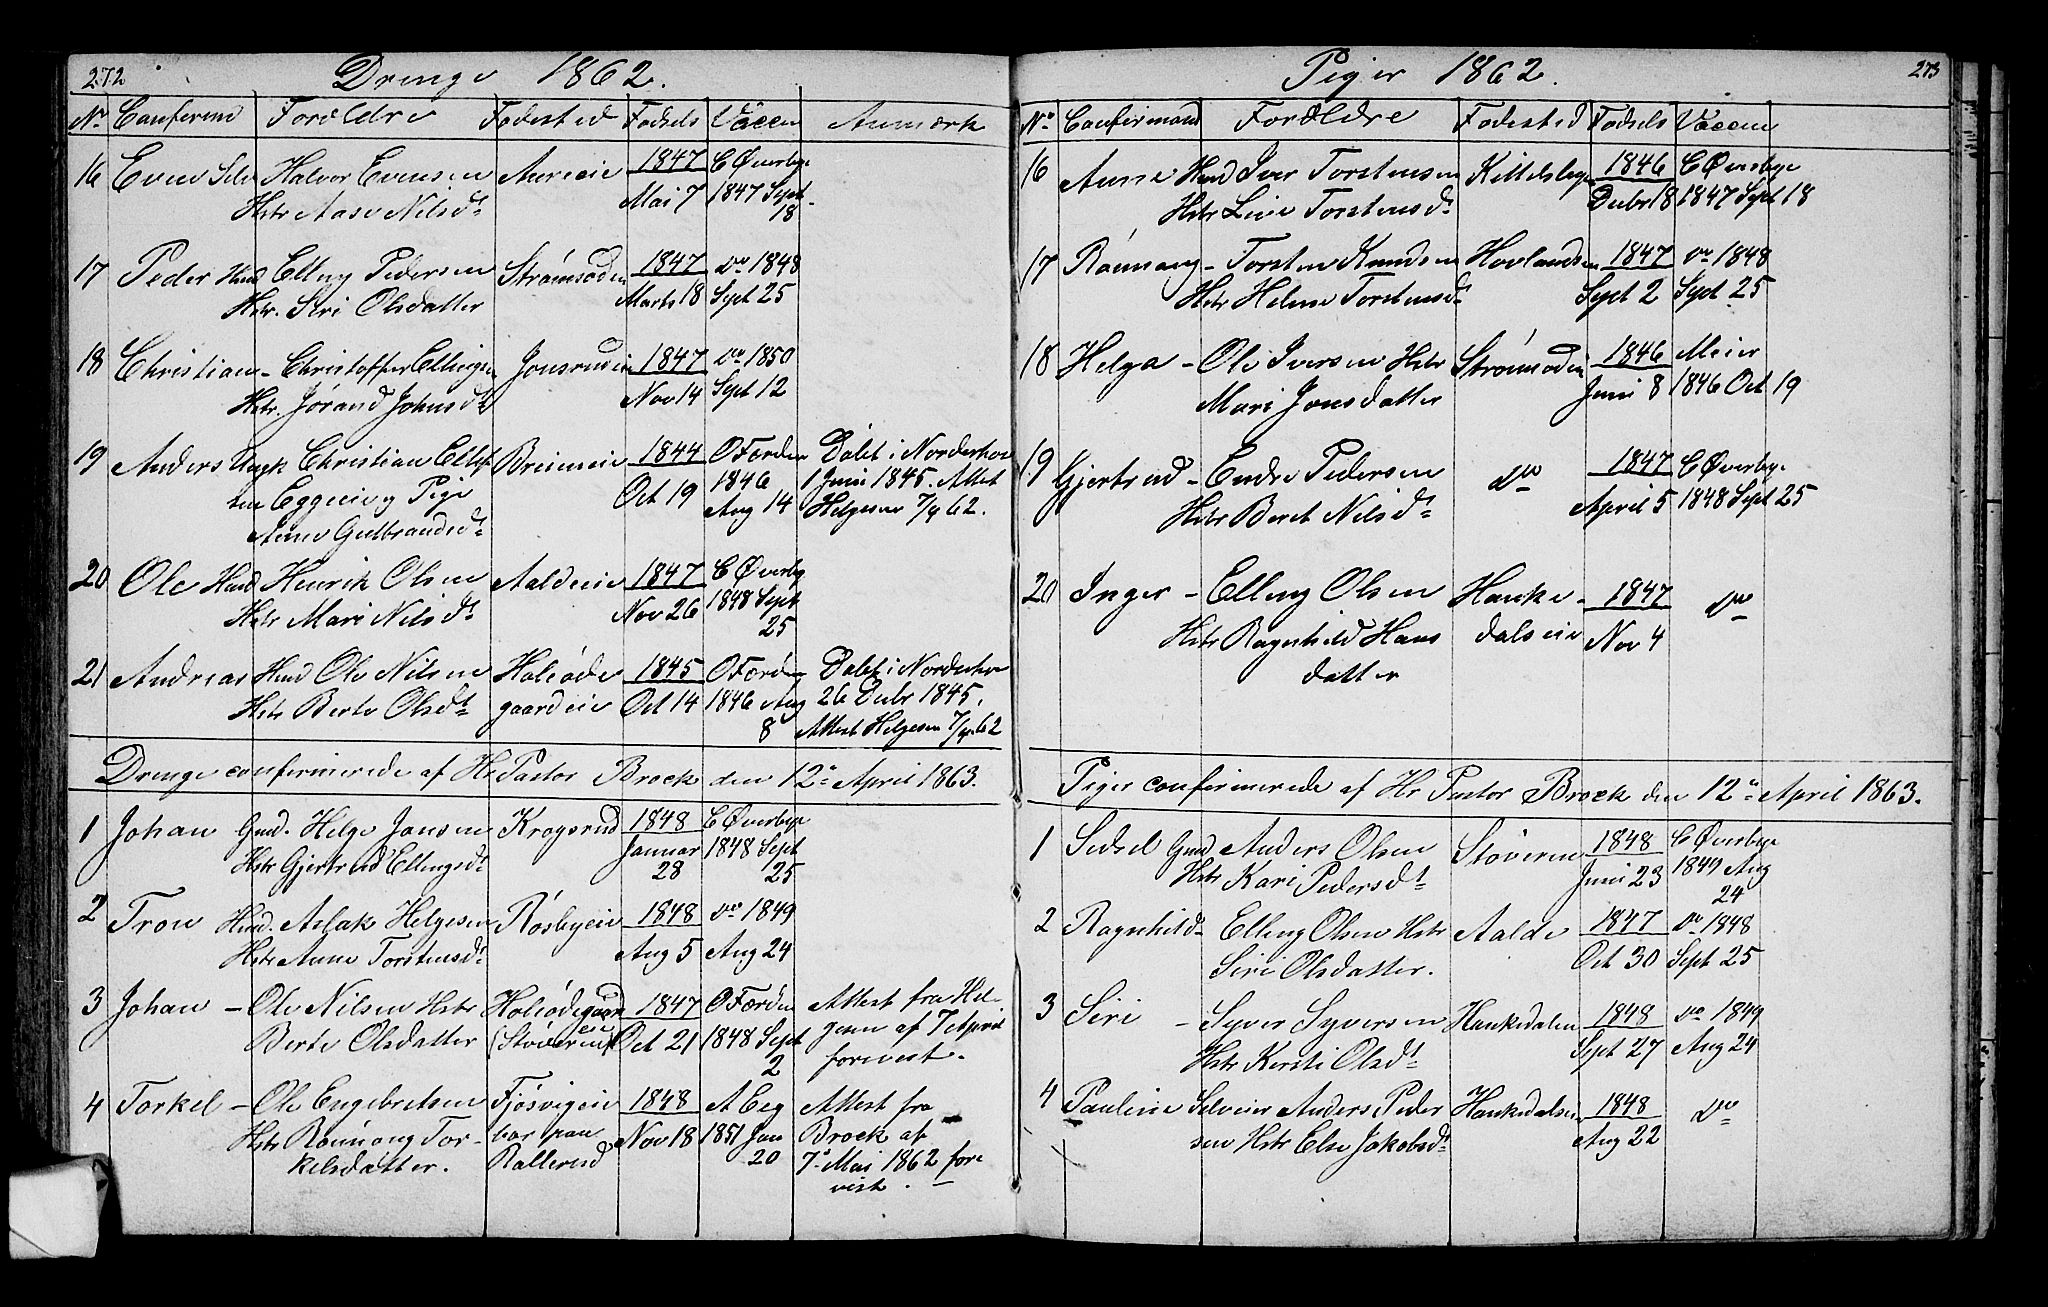 272
Drenge 1862.
No Confirm Forældre Fødested Fødsels Vaccin Anmærk
16 Even Selv Halvor Evensen Aureeie 1847 C Øverbye
Hstr Aase Nilsdt. Mai 7 1847 Sept
18
17 Peder Hmd Elling Pedersen Strømsoden 1847 do 1848
Hstr. Siri Olsdatter Marts 18 Sept 25
18 Christian - Christoffer Ellingsen Jonsrudeie 1847 do 1850
Hstr. Jørand Johnsdt. Nov 14 Sept 12
19 Anders Ungk Christian Ellef Breieneie 1844 O Færden Døbt i Norderhov
sen Eggeeie og Pige Oct 19 1846 1 Juni 1845. Attest
Anne Gulbrandsdt. Aug 14 Helgesen 7/4 62.
20 Ole Hmd Henrik Olsen Aaldeeie 1847 C Øverby
Hstr Mari Nilsdt. Nov 26 1848 Sept
25
21 Andreas Hmd Ole Nilsen Holeøde 1845 O Færden Døbt i Norderhov
Hstr Berte Olsdt. gaardeie Oct 14 1846 Aug 26 Decbr 1845.
8 Attest Helgesen 7/4 62
Drenge confirmerede af Hr Pastor Brock den 12te April 1863.
1 Johan Gmd. Helge Jansen Krogsrud 1848 C Øverbye
Hstr Gjertrud Ellingsdt. Januar 1848 Sept
28 25
2 Tron Hmd. Aslak Helgesen Røsbyeie 1848 do 1849
Hstr Anne Torstensdt. Aug 5 Aug 24
3 Johan - Ole Nilsen Hstr Holeødegaar 1847 O Færden Attest fra Hel-
Berte Olsdatter eie (Støverneie) Oct 21 1848 Sept gesen af 7 April
2 forevist.
4 Torkel - Ole Engebretsen Fjøsvigeie 1848 A Eeg Attest fra
Hstr Rønnoug Tor- bor paa Nov 18 1851 Jan Brock af
kelsdatter. Rallerud 20 7de Mai 1862 fore
vist.
273
Piger 1862.
No Confirmand Forældre Fødested Fødsels Vaccin
16 Anne Hmd Iver Torstensen Kittelsbye 1846 C Øverbye
Hstr Live Torstensdt. Decbr 18 1847 Sept 18
17 Rønnoug - Torsten Knudsen Hovlandsen 1847 do 1848
Hstr Helene Torstensdt. Sept 2 Sept 25
18 Helga - Ole Iversen Hstr Strømsoden 1846 Meier
Mari Jonsdatter Juni 8 1846 Oct 19
19 Gjertrud - Endre Pedersen do 1847 C Øverbye
Hstr Beret Nilsdt. April 5 1848 Sept 25
20 Inger - Elling Olsen Hanke- 1847 do
Hstr Ragnhild Hans dalseie Nov 4
datter
Piger confirmerede af Hr Pastor Brock den 12te April 1863.
1 Sidsel Gmd Anders Olsen Støveren 1848 C Øverbye
Hstr Kari Pedersdt. Juni 23 1849 Aug
24
2 Ragnhild - Elling Olsen Hstr Aalde 1847 do 1848
Siri Olsdatter. Oct 30 Sept 25
3 Siri - Syver Syversen Hankedalen 1848 do 1849
Hstr Kersti Olsdt. Sept 27 Aug 24
4 Pauline Selveier Anders Peder Hankedalen 1848 do
sen Hstr Else Jakobsdt. Aug 22